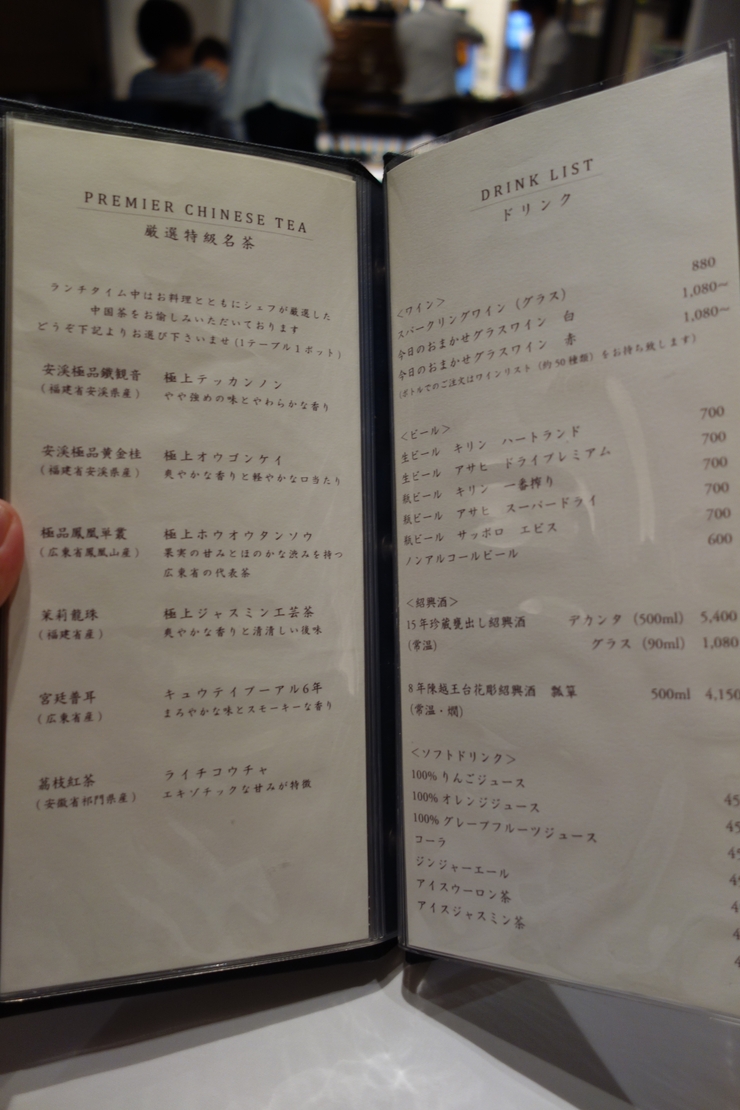 PREMIER CHINESE TEA
厳選特級名茶
ランチタイム中はお料理とともにシェフが厳選した
中国茶をお愉しみいただいております
どうぞ下記よりお選び下さいませ (1テーブル1ポット)
安渓極品鐵観音 極上テッカンノン
(福建省安渓県産) やや強めの味とやわらかな香り
安渓極品黄金桂 極上オウゴンケイ
(福建省安渓県産) 爽やかな香りと軽やかな口当たり
極品鳳凰単叢 極上ホウオウタンソウ
(広東省鳳凰山産) 果実の甘みとほのかな渋みを持つ
広東省の代表茶
茉莉龍珠 極上ジャスミン工芸茶
(福建省産) 爽やかな香りと清清しい後味
宮廷普耳 キュウテイプーアル6年
(広東省産) まろやかな味とスモーキーな香り
荔枝紅茶 ライチコウチャ
(安徽省祁門県産) エキゾチックな甘みが特徴
DRINK LIST
ドリンク
<ワイン>
スパークリングワイン (グラス) 880
今日のおまかせグラスワイン 白 1,080~
今日のおまかせグラスワイン 赤 1,080~
(ボトルでのご注文はワインリスト (約50種類) をお持ち致します)
<ビール>
生ビール キリン ハートランド 700
生ビール アサヒ ドライプレミアム 700
瓶ビール キリン 一番搾り 700
瓶ビール アサヒ スーパードライ 700
瓶ビール サッポロ エビス 700
ノンアルコールビール 600
<紹興酒>
15年珍蔵甕出し紹興酒 デカンタ (500ml) 5,400
(常温) グラス (90ml) 1,080
8年陳越王台花彫紹興酒 瓢箪 500ml 4,150
(常温・燗)
<ソフトドリンク>
100%りんごジュース
100%オレンジジュース
100%グレープフルーツジュース
コーラ
ジンジャーエール
アイスウーロン茶
アイスジャスミン茶